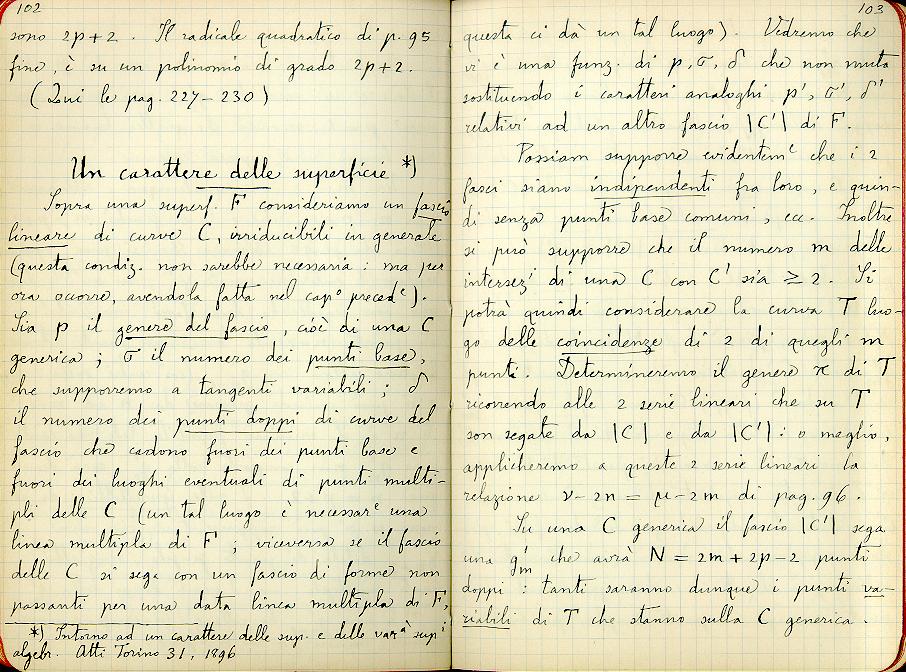 102
sono 2p+2. Il radicale quadratico di p. 95
fine, è su un polinomio di grado 2p+2.
(Qui le pag. 227–230)
Un carattere delle superficie *)
Sopra una superf. F consideriamo un fascio
lineare di curve C, irriducibili in generale
(questa condiz. non sarebbe necessaria: ma per
ora occorre, avendola fatta nel cap° preced^e).
Sia p il genere del fascio, cioè di una C
generica; σ il numero dei punti base,
che supporremo a tangenti variabili; δ
il numero dei punti doppi di curve del
fascio che cadono fuori dei punti base e
fuori dei luoghi eventuali di punti multi-
pli delle C (un tal luogo è necessar^e una
linea multipla di F; viceversa se il fascio
delle C si sega con un fascio di forme non
passanti per una data linea multipla di F,
*) Intorno ad un carattere delle sup. e delle var^à sup^i
algebr. Atti Torino 31, 1896
103
questa ci dà un tal luogo). Vedremo che
vi è una funz. di p, σ, δ che non muta
sostituendo i caratteri analoghi p', σ', δ'
relativi ad un altro fascio |C'| di F.
Possiam supporre evidentem^e che i 2
fasci siano indipendenti fra loro, e quin-
di senza punti base comuni, ecc. Inoltre
si può supporre che il numero m delle
intersez^i di una C con C' sia ≥ 2. Si
potrà quindi considerare la curva T luo-
go delle coincidenze di 2 di quegli m
punti. Determineremo il genere π di T
ricorrendo alle 2 serie lineari che su T
son segate da |C| e da |C'|: o meglio,
applicheremo a queste 2 serie lineari la
relazione ν–2n = μ–2m di pag. 96.
Su una C generica il fascio |C'| sega
una g'm che avrà N = 2m+2p–2 punti
doppi: tanti saranno dunque i punti va-
riabili di T che stanno sulla C generica.